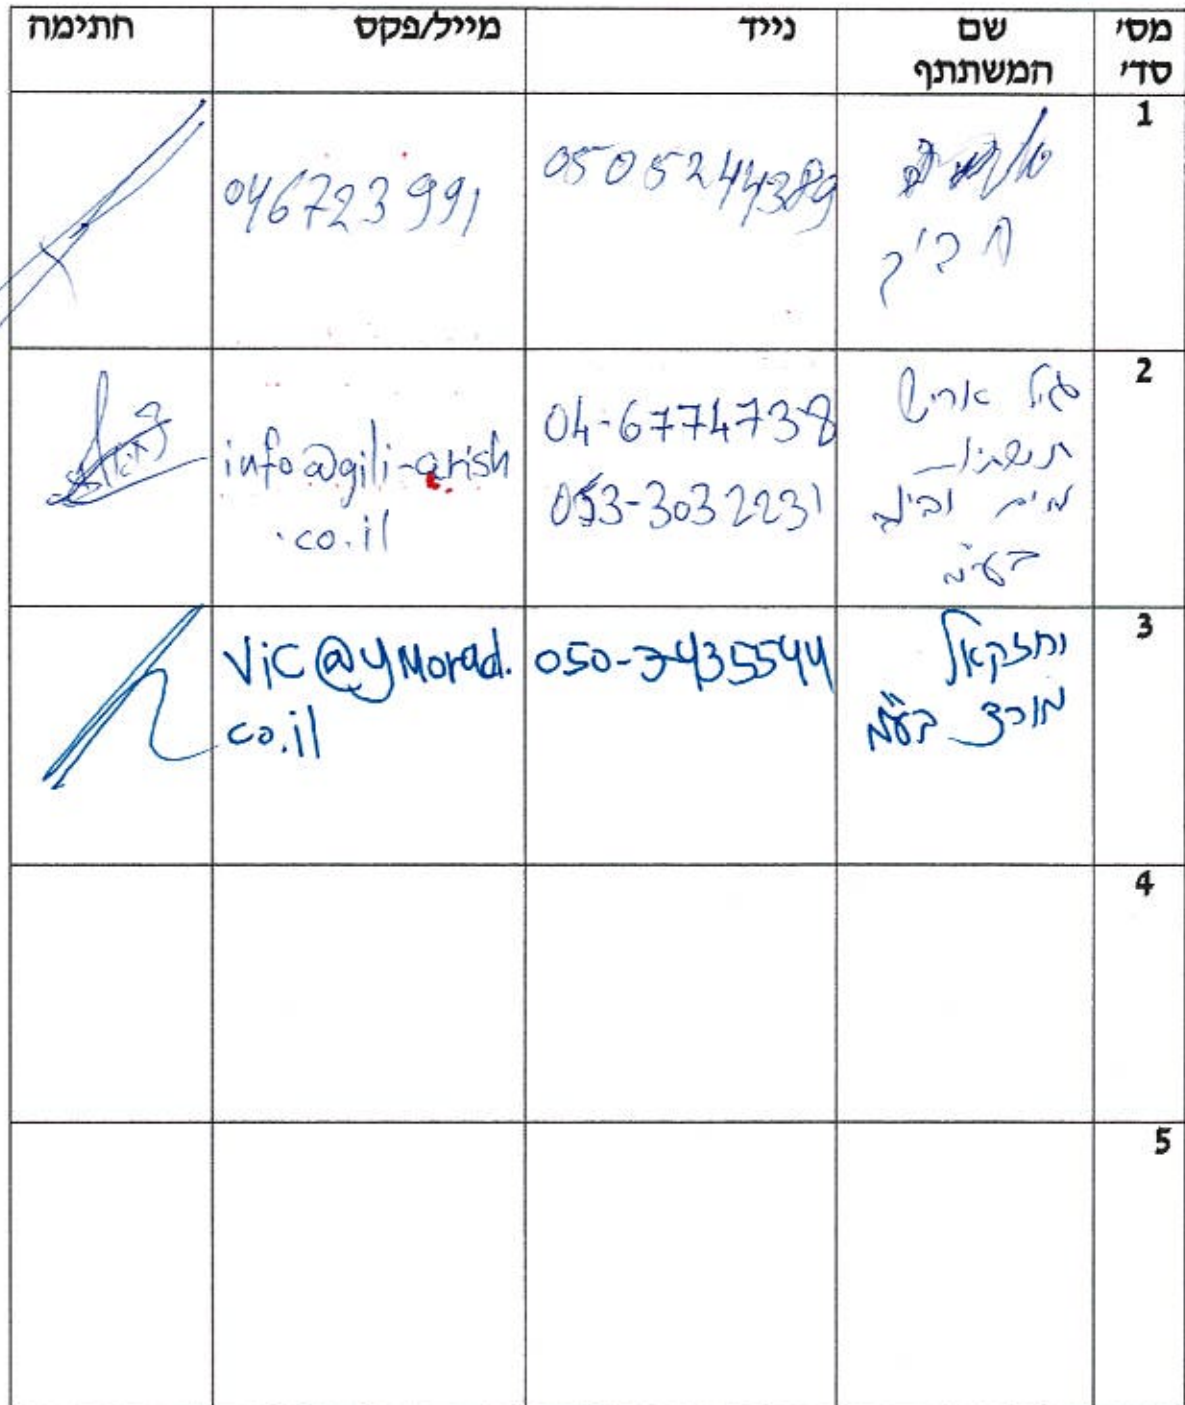 מס' סד' שם המשתתף נייד מייל/פקס חתימה
1
חביב
0505244389
046723991
2
גילי אריש
תשתיות
מים וביוב
בע"מ
04-6774738
053-3032231
info@gili-arish
.co.il
3
יחזקאל
מורד בע"מ
050-7435544
Vic@yMorad.
co.il
4
5